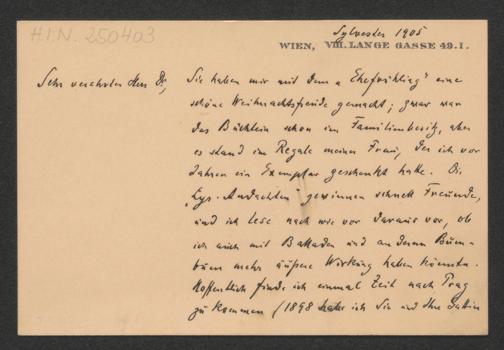 H.I.N. 250403
Sylvester 1905
WIEN, VIII. LANGE GASSE 49. I.
Sehr verehrter Herr Dr,
Sie haben mir mit dem „Ehefrühling" eine
schöne Weihnachtsfreude gemacht; zwar war
das Büchlein schon im Familienbesitz, aber
es stand im Regale meiner Frau, der ich vor
Jahren ein Exemplar geschenkt hatte. Die
Andachten" gewinnen schnell Freunde,
und ich lese nach wie vor daraus vor, ob
ich auch mit Balladen und anderen
mehr äußere Wirkung haben könnte.
Hoffentlich finde ich einmal Zeit nach Prag
zu kommen (1898 habe ich Sie und Ihre Gattin